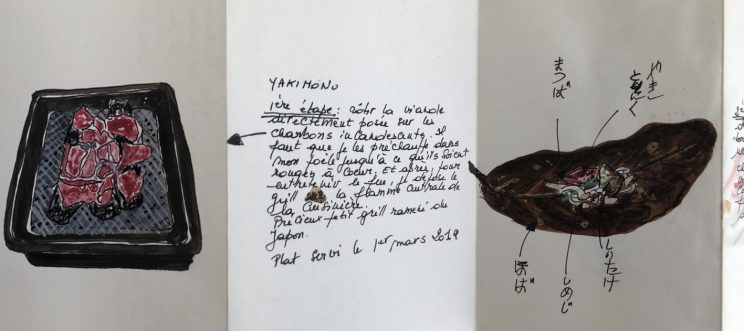 YAKIMONO
1ère étape : rôtir la viande
directement posée sur les
charbons incandescents. Il
faut que je les préchauffe dans
mon poêle jusqu'à ce qu'ils soient
rouges à coeur. Et après, pour
entretenir le feu, je dépose le
grill sur la flamme centrale de
la cuisinière.
Précieux petit grill ramené du
Japon.
Plat servi le 1er mars 2019
まつば
やきこ
ほおば
しめじ
しいたけ